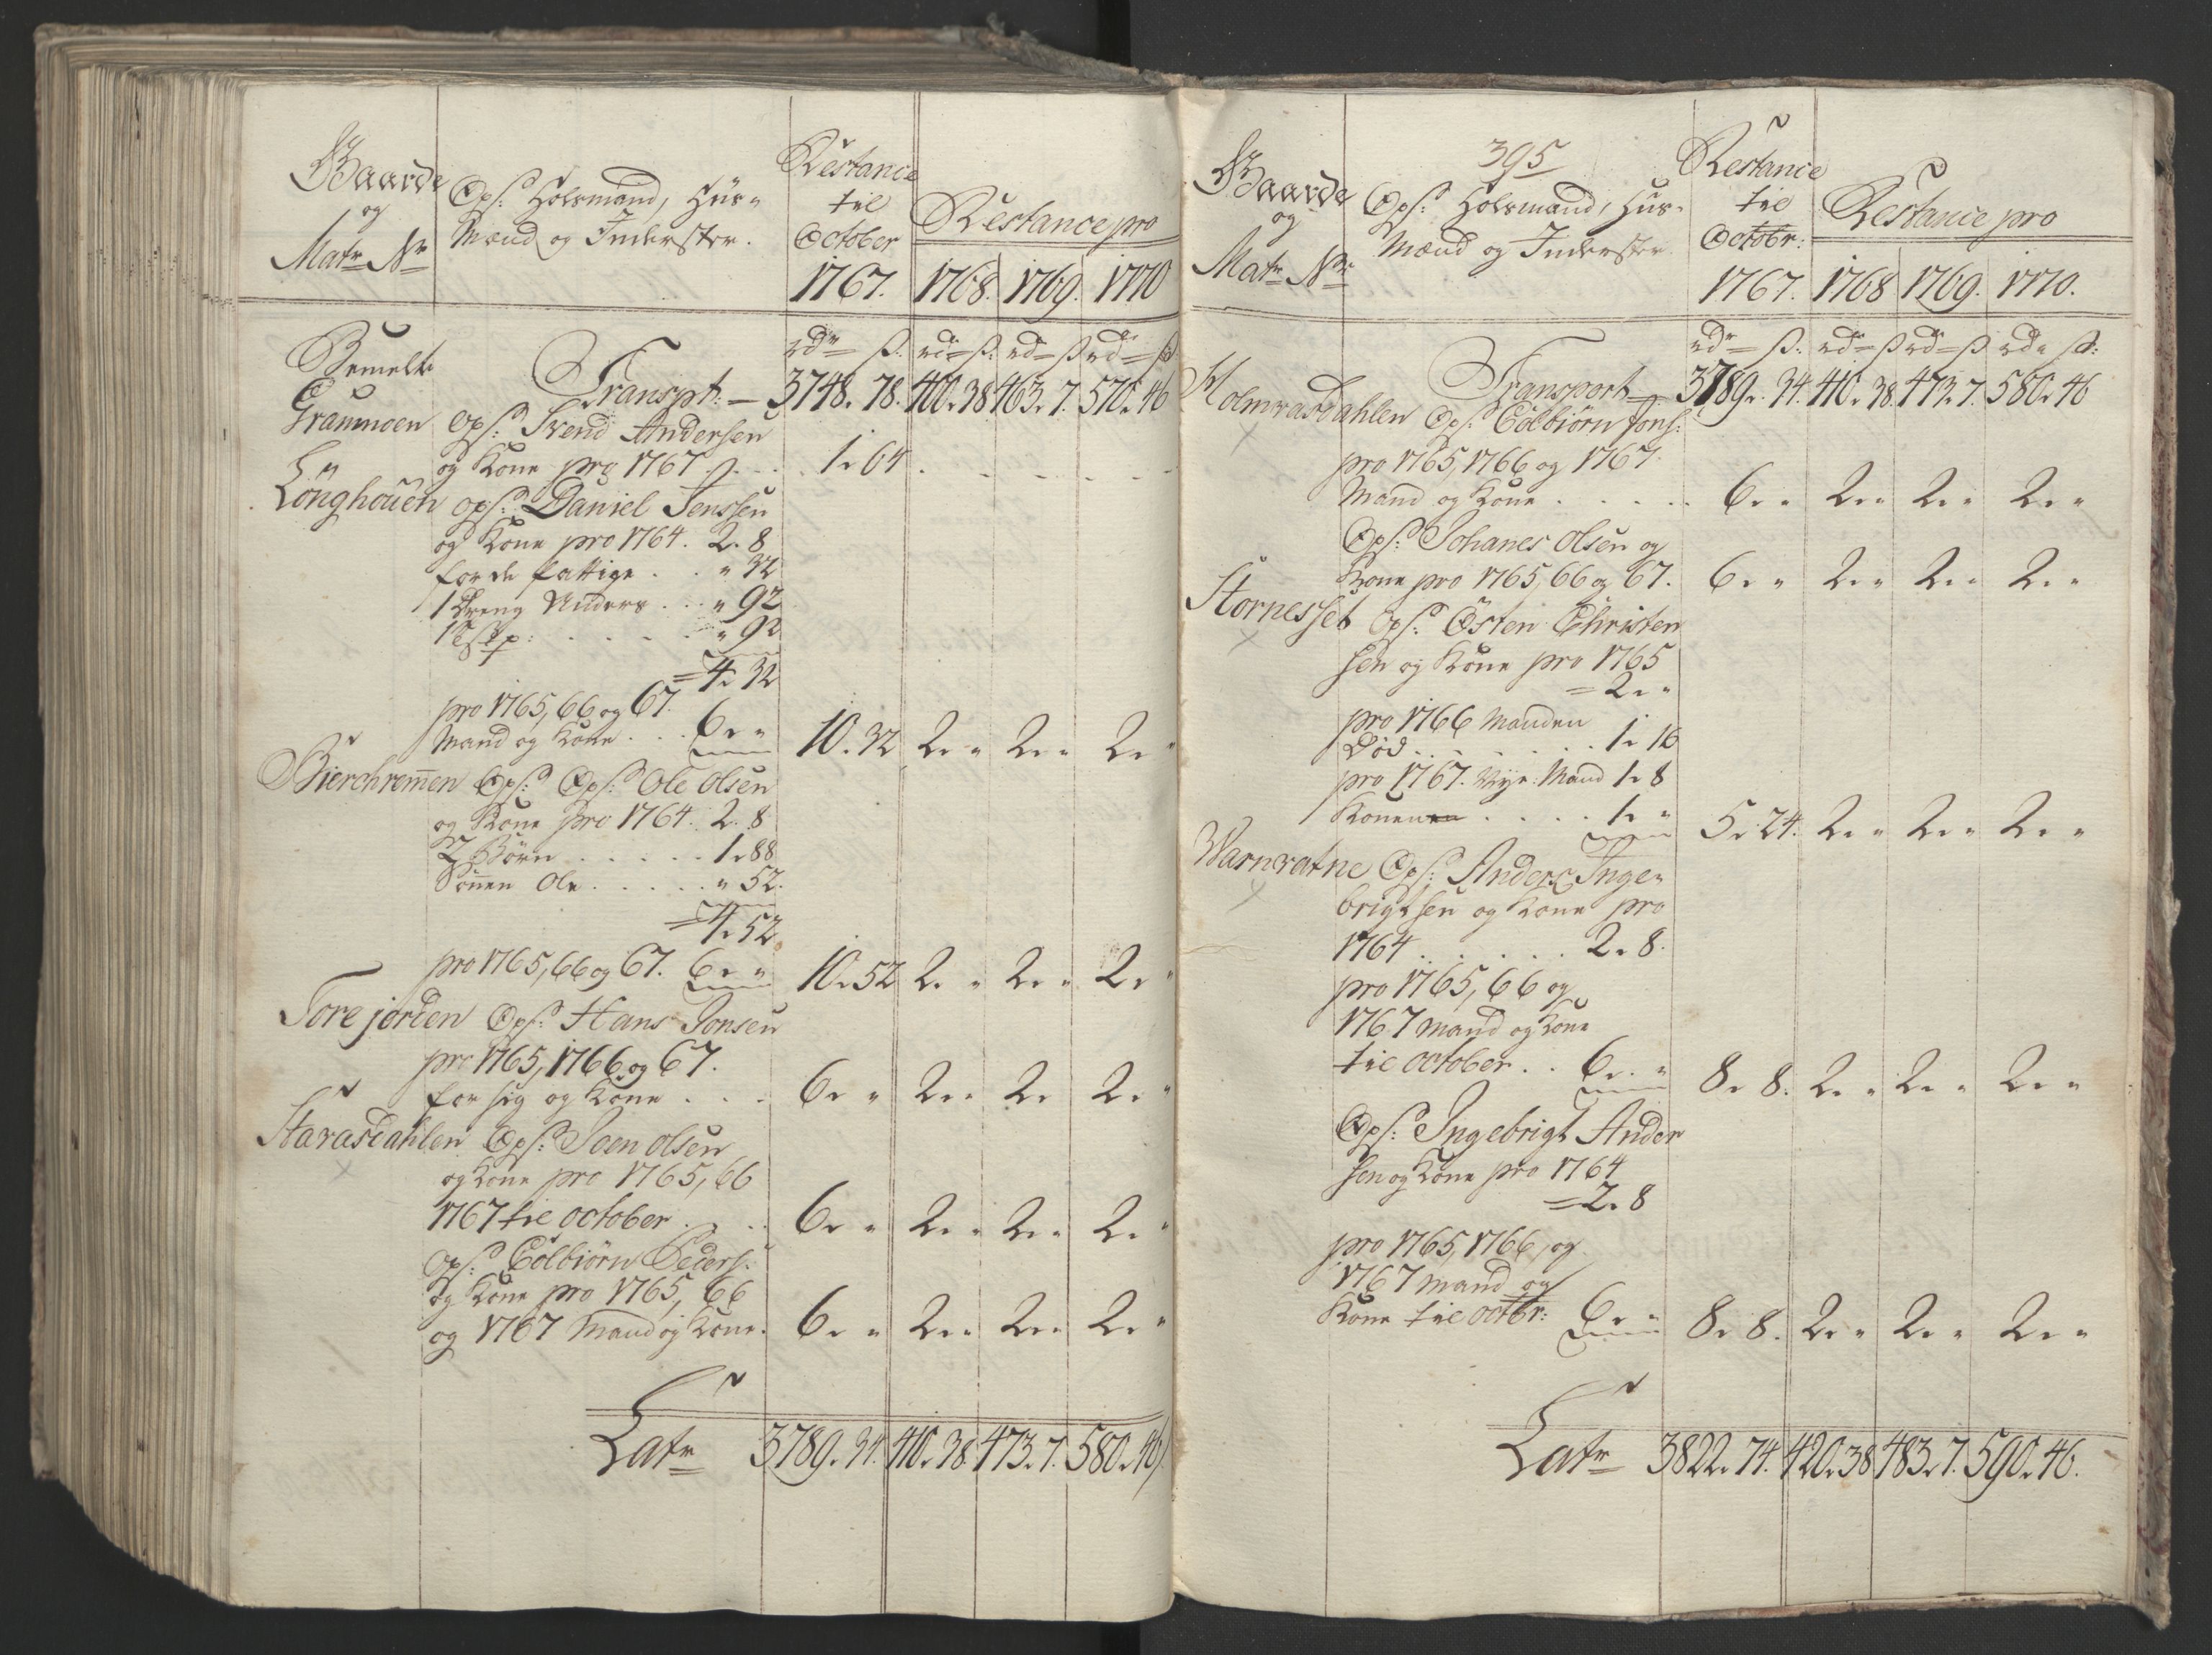 Gaarde
og
Matr No
Ops: Holsmænd, Huus-
Mænd og Inderster.
Restance
til
October
1767.
Restance pro
1768. 1769. 1770
rdr ß. rd ß. rd ß rd ß
Bemelte
Transpt: — 3748. 78. 400. 38 463. 7. 570. 46
Graumoen Ops: Svend Andersen
og Kone pro 1767 . . . 1. 64 . - - - -
Lönghouen Ops: Daniel Jenssen
og Kone pro 1764. 2. 8
for de fattige . . " 32
1 Dreng Anders . . . " 92
1 . . . . . " 92
= 4. 32
pro 1765, 66 og 67.
Mand og Kone . . . 6. " 10. 32 2. " 2. " 2. "
Bierchremen Ops: Ops: Ole Olsen
og Kone pro 1764. 2. 8
2 Børn . . . . . 1. 88
Sønnen Ole . . . . . " 52.
= 4. 52
pro 1765, 66 og 67. 6. " 10. 52 2. " 2. " 2. "
Torejorden Ops: Hans Jonsen
pro 1765, 1766 og 67.
for sig og Kone . . . 6. " 2. " 2. 2. "
Stavasdahlen Ops: Joen Olsen
og Kone pro 1765, 66
1767 til October . . . 6. " 2. " 2. " 2. "
Ops: Colbiørn Peders:
og Kone pro 1765, 66
og 1767 Mand og Kone. 6. " 2. " 2. " 2. "
Latr 3789. 34. 410. 38. 473. 7. 580. 46
395
Gaarde
og
Matr No
Ops: Holsmænd, Huus-
Mænd og Inderster
Restance
til
Octobr:
1767.
Restance pro
1768 1769. 1770.
rdr ß. rd ß rd ß rd ß:
Transport — 3789. 34. 410. 38. 473. 7. 580. 46
Holmvasdahlen Ops: Colbiørn Jons:
pro 1765, 1766 og 1767.
Mand og Kone . . . . . 6. " 2. " 2. " 2. "
Ops: Johanes Olsen og
Kone pro 1765, 66 og 67. 6. " 2. " 2. " 2. "
Stornesset Ops: Østen Christen
sen og Kone pro 1765
= 2. "
pro 1766 Manden
Død . . . . . . . 1. 16
pro 1767. Nye Mand 1. 8
Konen . . . . 1. " 5. 24. 2. " 2. " 2. "
Warnvatne Ops: Anders Inge-
brigtsen og Kone pro
1764 . . . . . . 2. 8.
pro 1765, 66 og
1767 Mand og Kone
til October . . 6. " 8. 8. 2. " 2. " 2. "
Ops: Ingebrigt Ander
sen og Kone pro 1764
= 2. 8
pro 1765, 1766, og
1767 Mand og
Kone til Octbr: 6. " 8. 8. 2. " 2. " 2. "
Latr 3822. 74. 420. 38 483. 7. 590. 46.